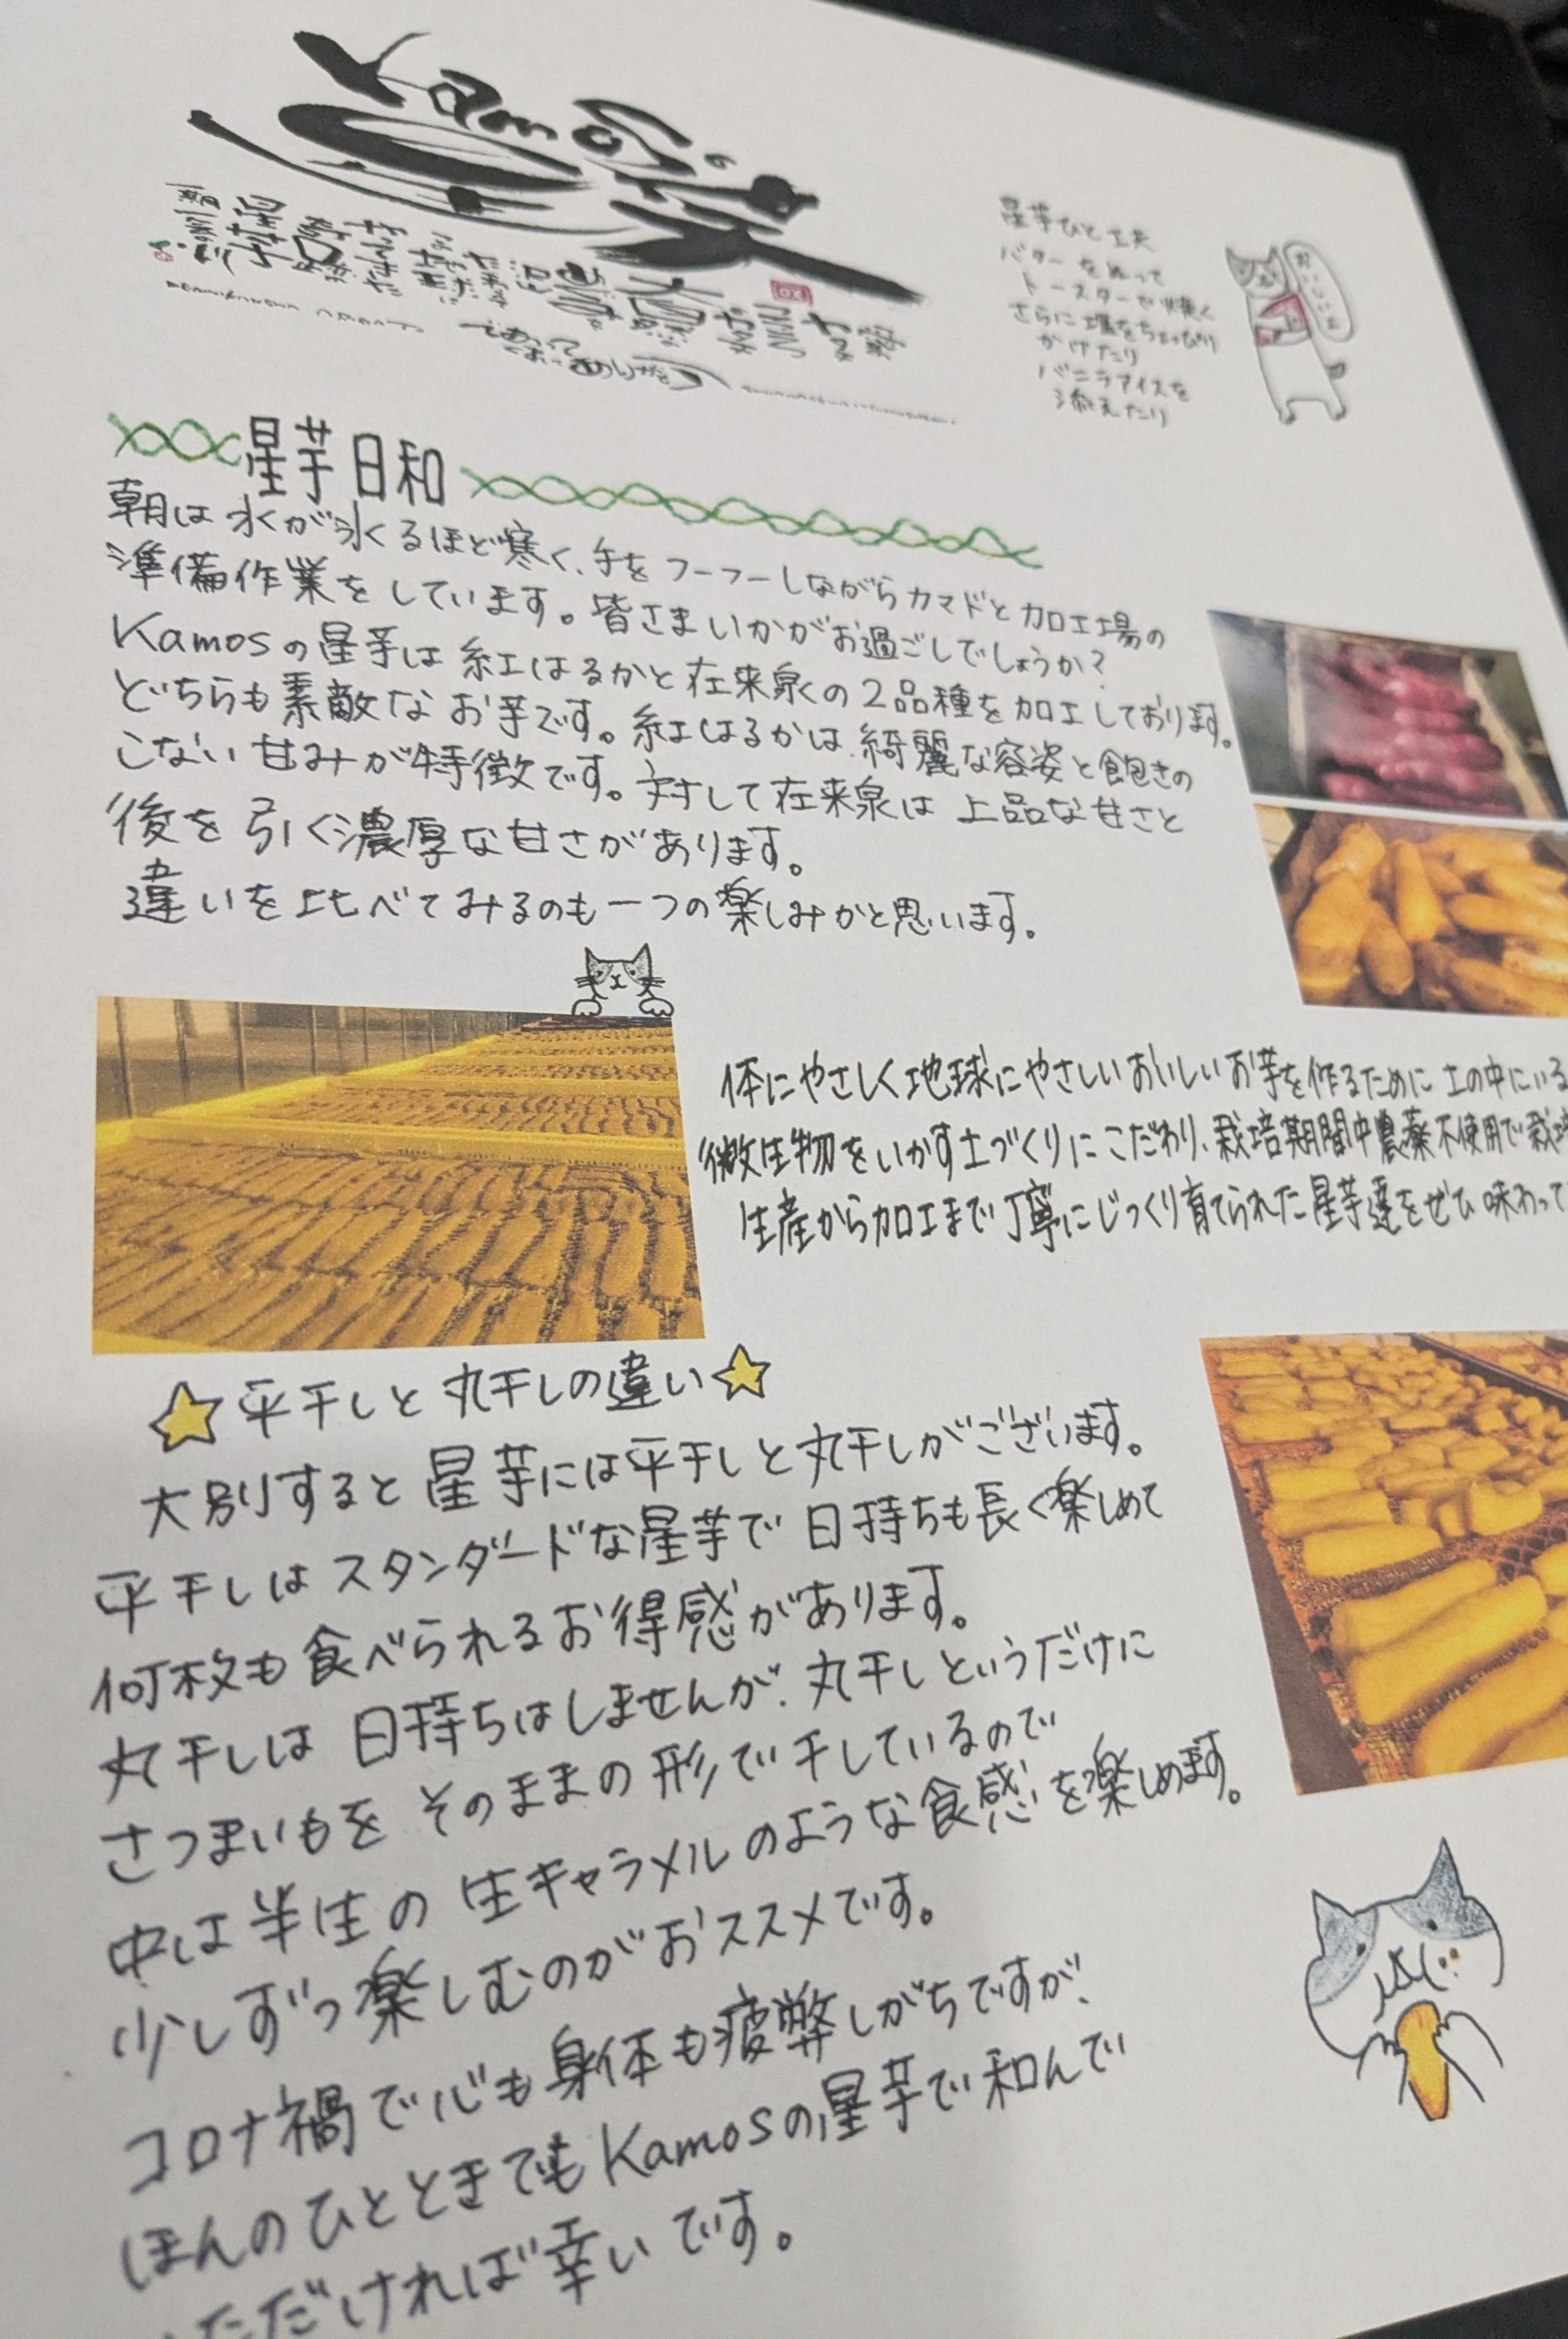 Kamos
星芋ひと工夫
バターをぬって
トースターで焼く
さらに塩をちょっぴり
かけたり
バニラアイスを
添えたり
おいしいよ
星芋日和
朝は水が氷るほど寒く、手をフーフーしながらカマドと加工場の
準備作業をしています。皆さまいかがお過ごしでしょうか?
Kamosの星芋は紅はるかと在来泉の2品種を加工しております。
どちらも素敵なお芋です。紅はるかは綺麗な容姿と飽きの
こない甘みが特徴です。対して在来泉は上品な甘さと
後を引く濃厚な甘さがあります。
違いを比べてみるのも一つの楽しみかと思います。
体にやさしく地球にやさしいおいしいお芋を作るために土の中にいる
微生物をいかす土づくりにこだわり、栽培期間中農薬不使用で栽培
生産から加工まで丁寧にじっくり育てられた星芋達をぜひ味わって
平干しと丸干しの違い
大別すると星芋には平干しと丸干しがございます。
平干しはスタンダードな星芋で日持ちも長く楽しめて
何枚も食べられるお得感があります。
丸干しは日持ちはしませんが、丸干しというだけに
さつまいもをそのままの形で干しているので
中は半生の生キャラメルのような食感を楽しめます。
少しずつ楽しむのがおススメです。
コロナ禍で心も身体も疲弊しがちですが、
ほんのひとときでもKamosの星芋で和んで
いただければ幸いです。